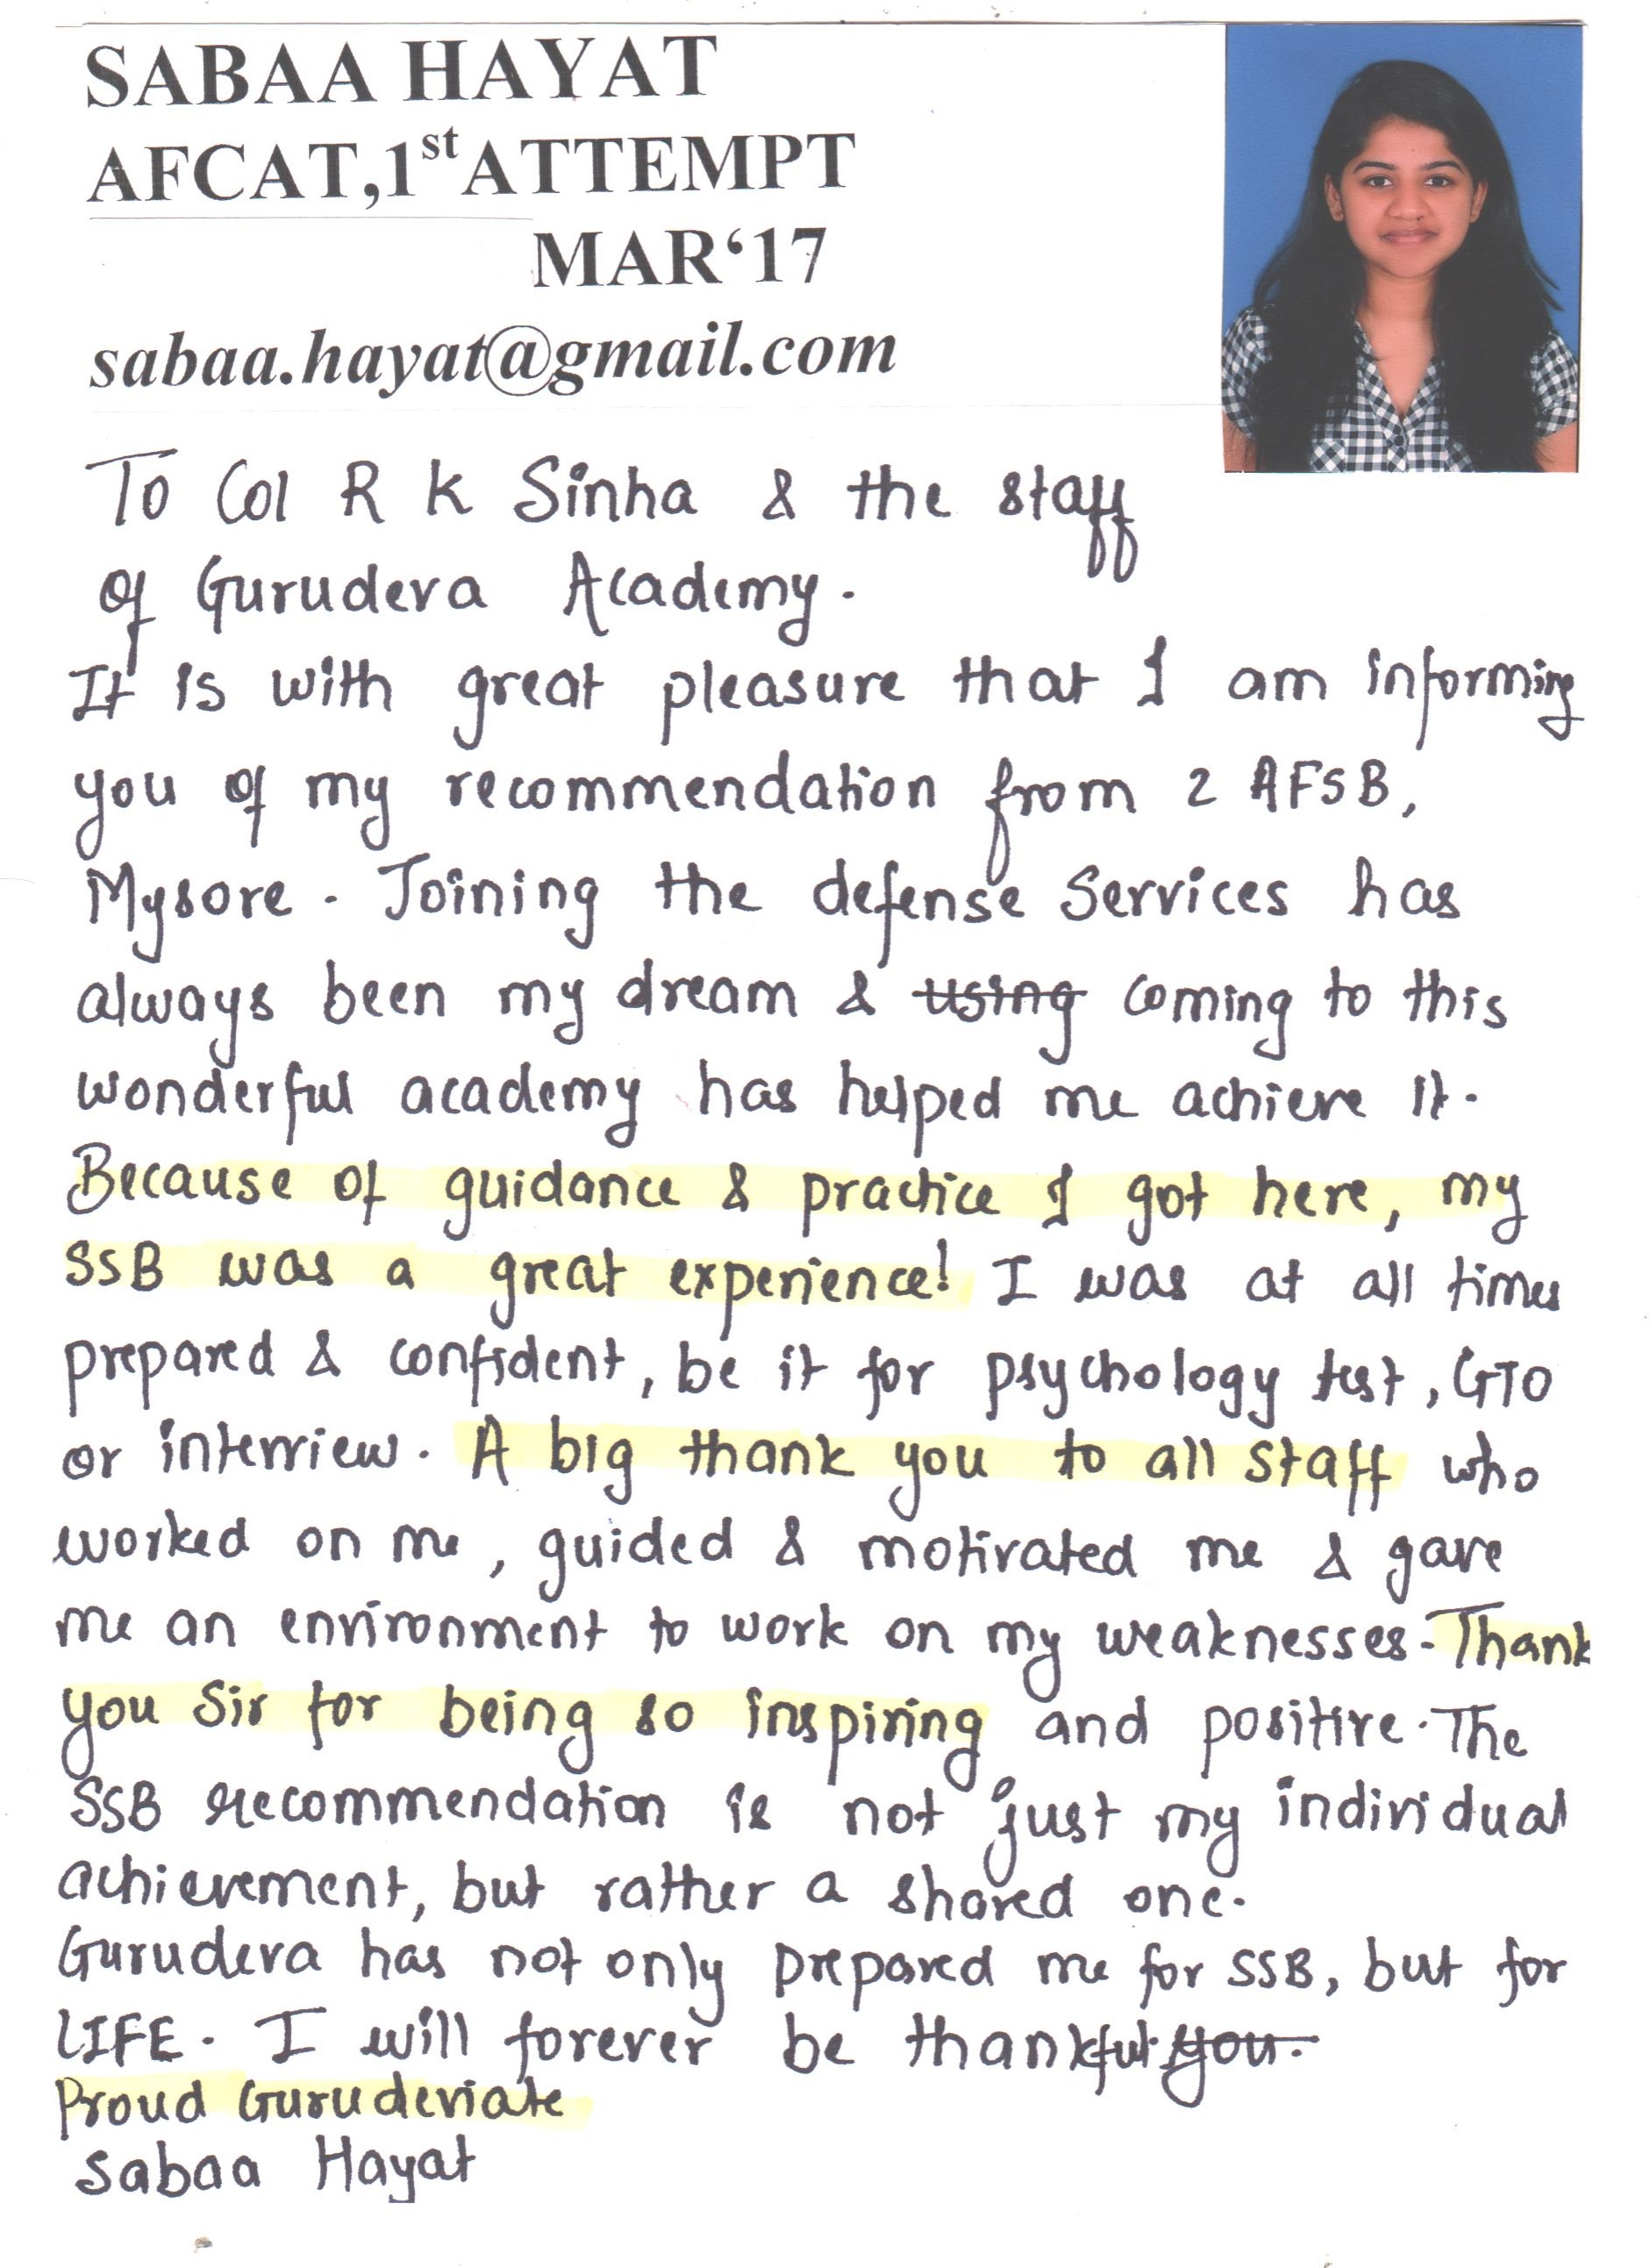 SABAA HAYAT
AFCAT,1st ATTEMPT
MAR‘17
sabaa.hayat@gmail.com
To Col R K Sinha & the staff
of Gurudeva Academy.
It is with great pleasure that I am informing
you of my recommendation from 2 AFSB,
Mysore. Joining the defense Services has
always been my dream & using coming to this
wonderful academy has helped me achieve it.
Because of guidance & practice I got here, my
SSB was a great experience! I was at all times
prepared & confident, be it for psychology test, GTO
or interview. A big thank you to all staff who
worked on me, guided & motivated me & gave
me an environment to work on my weaknesses. Thank
you Sir for being so inspiring and positive. The
SSB recommendation is not just my individual
achievement, but rather a shared one.
Gurudeva has not only prepared me for SSB, but for
LIFE. I will forever be thankful. you.
Proud Gurudeviate
Sabaa Hayat